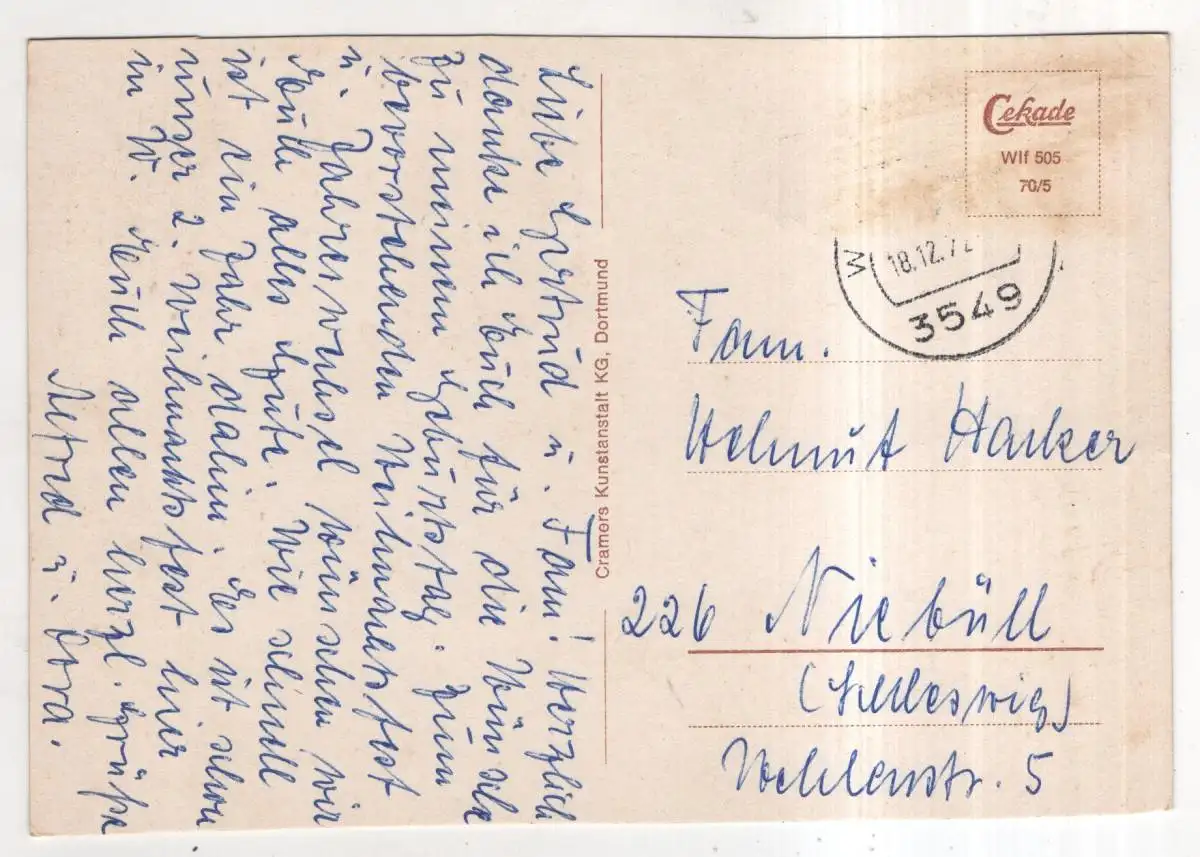 Liebe Gertrud u. Fam! Herzlich
danke ich Euch für die Wünsche
zu meinem Geburtstag. Zum
bevorstehenden Weihnachtsfest
u. Jahreswechsel wünschen wir
Euch alles Gute. Wie schnell
ist ein Jahr dahin. Es ist schon
unser 2. Weihnachtsfest hier
in W. Euch allen herzl. Grüße
Alfred u. Dora.
Cramers Kunstanstalt KG, Dortmund
Cekade
Wlf 505
70/5
W
18.12.72
3549
Fam.
Helmut Harker
226 Niebüll
(Schleswig)